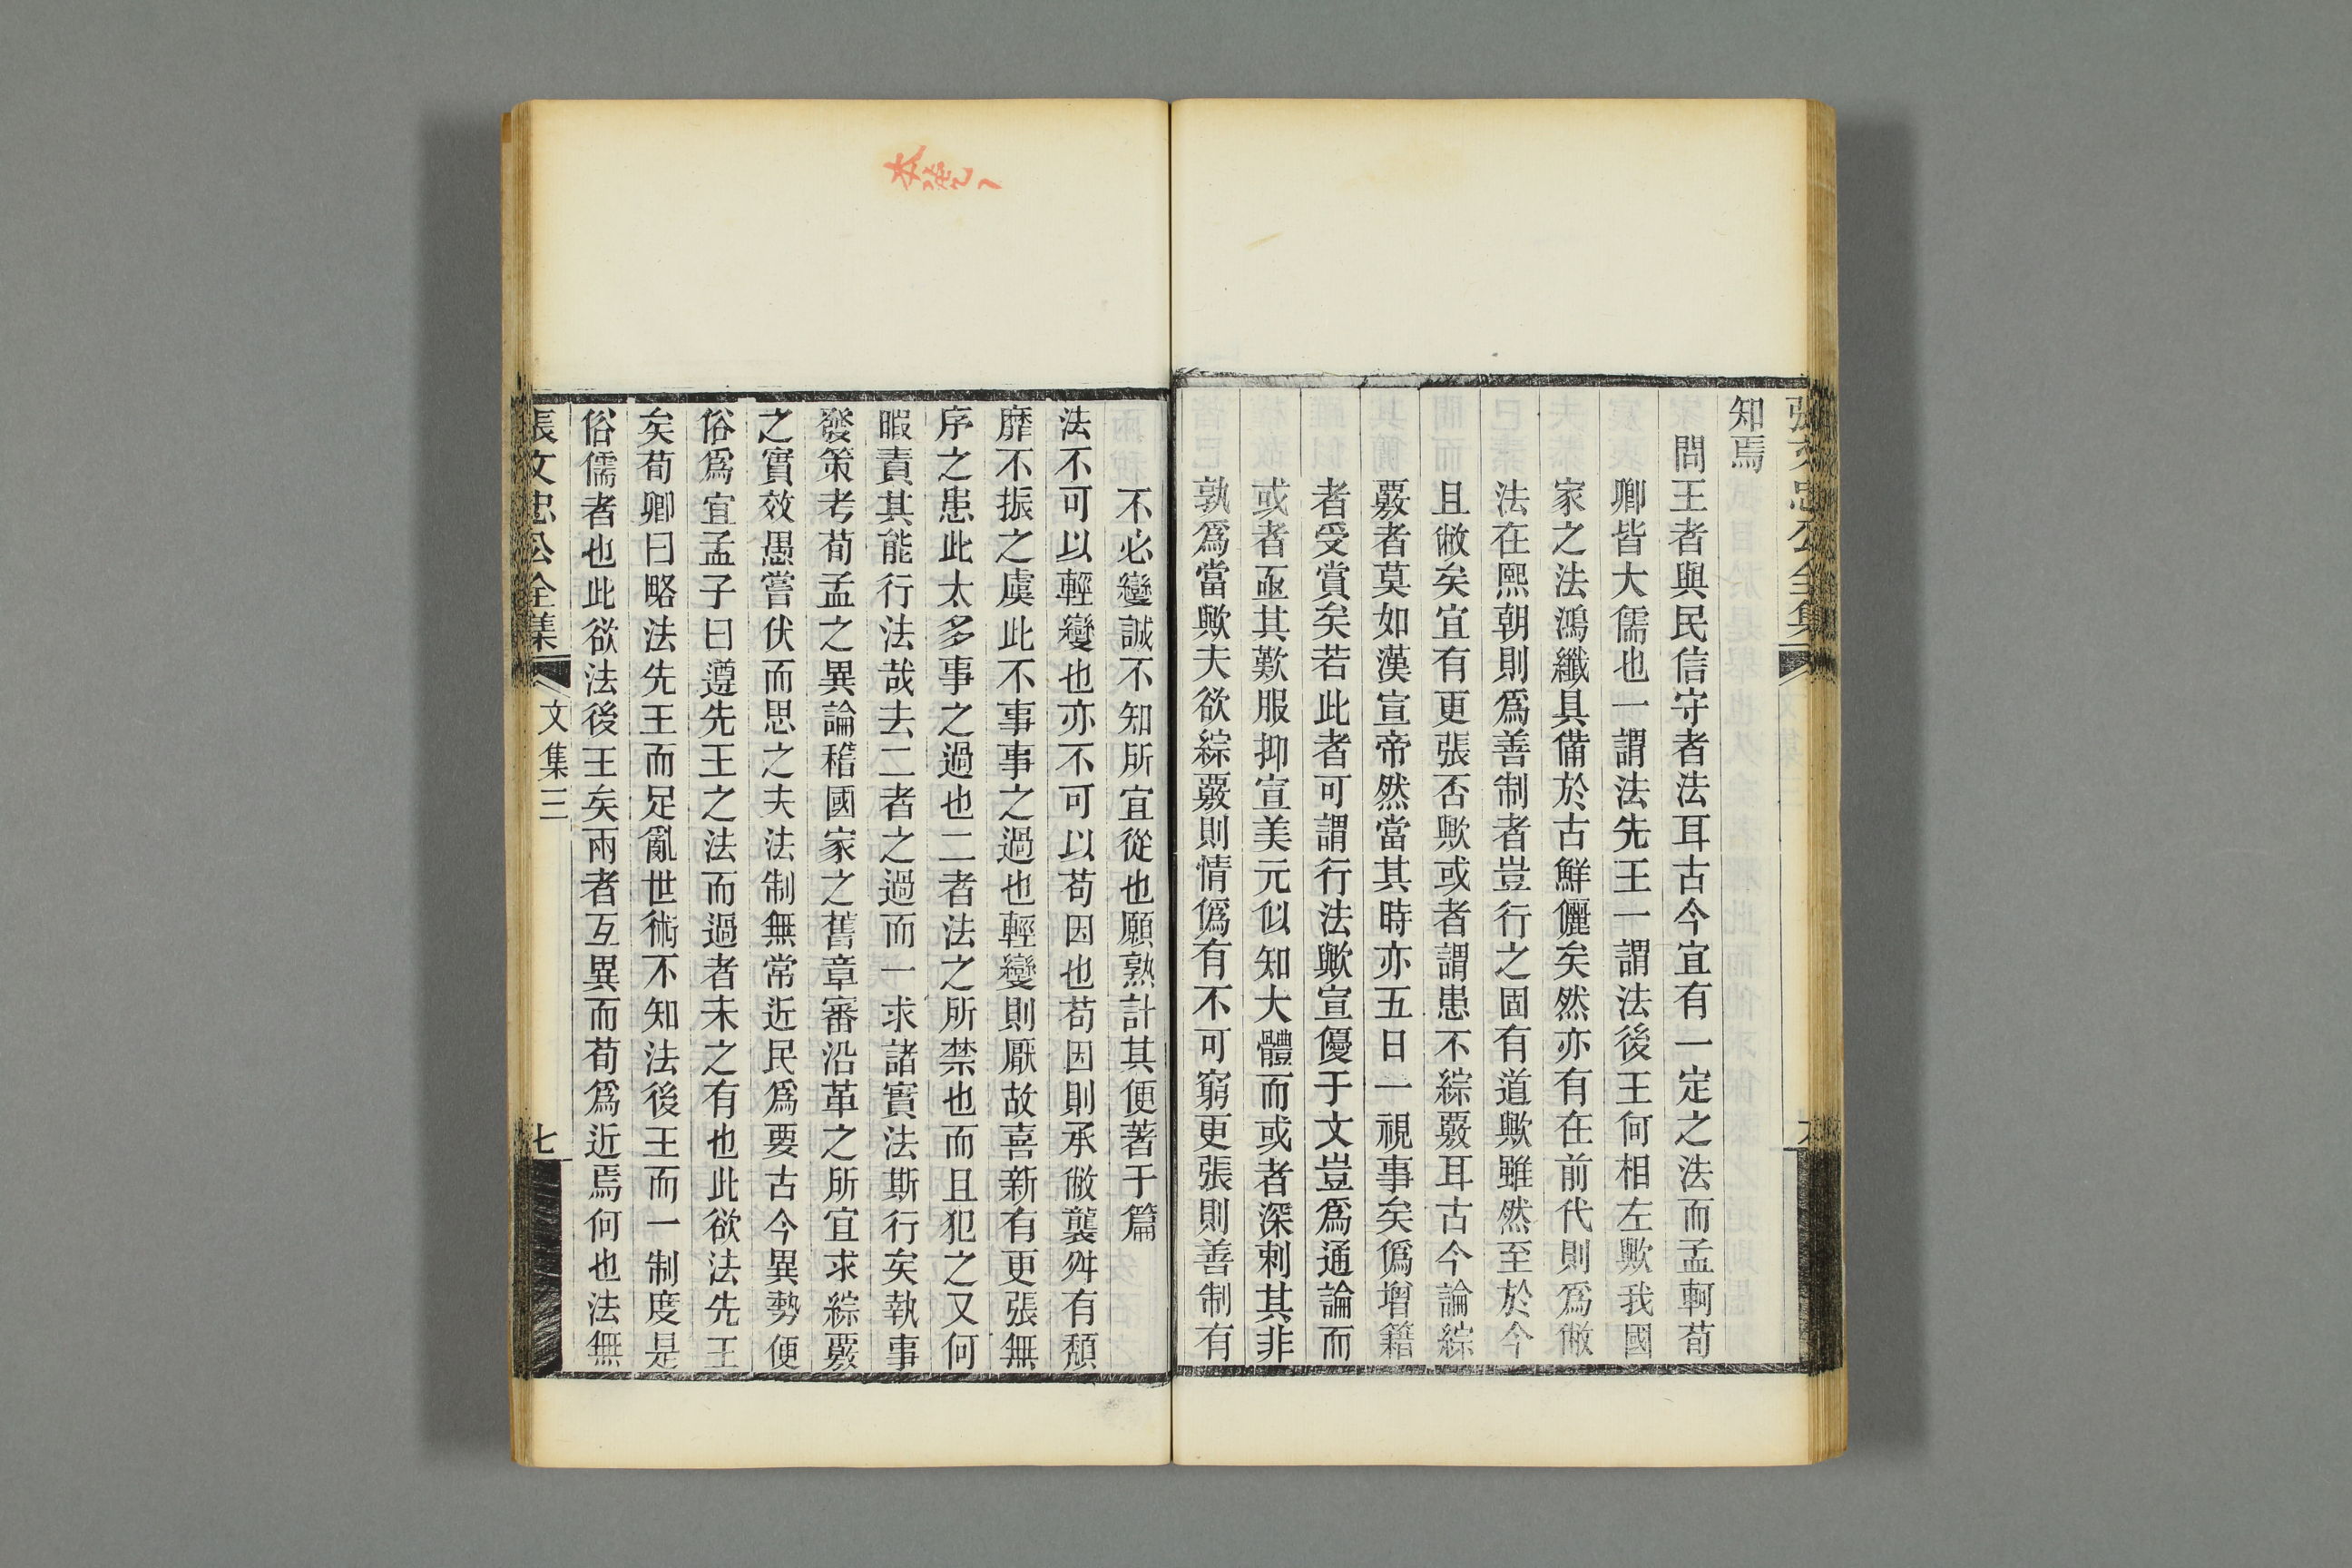 知焉
問王者與民信守者法耳古今宜有一定之法而孟軻荀
卿皆大儒也一謂法先王一謂法後王何相左歟我國
家之法鴻纖具備於古鮮儷矣然亦有在前代則爲敝
法在熙朝則爲善制者豈行之固有道歟雖然至於今
且敝矣宜有更張否歟或者謂患不綜覈耳古今論綜
覈者莫如漢宣帝然當其時亦五日一視事矣僞增籍
者受賞矣若此者可謂行法歟宣優于文豈爲通論而
或者亟其歎服抑宣美元似知大體而或者深刺其非
孰爲當歟夫欲綜覈則情僞有不可窮更張則善制有
不必變誠不知所宜從也願熟計其便著于篇
法不可以輕變也亦不可以苟因也苟因則承敝襲舛有頹
靡不振之虞此不事事之過也輕變則厭故喜新有更張無
序之患此太多事之過也二者法之所禁也而且犯之又何
暇責其能行法哉去二者之過而一求諸實法斯行矣執事
發策考荀孟之異論稽國家之舊章審沿革之所宜求綜覈
之實效愚嘗伏而思之夫法制無常近民爲要古今異勢便
俗爲宜孟子曰遵先王之法而過者未之有也此欲法先王
矣荀卿曰略法先王而足亂世術不知法後王而一制度是
俗儒者也此欲法後王矣兩者互異而荀爲近焉何也法無
張文忠公全集
文集三
七